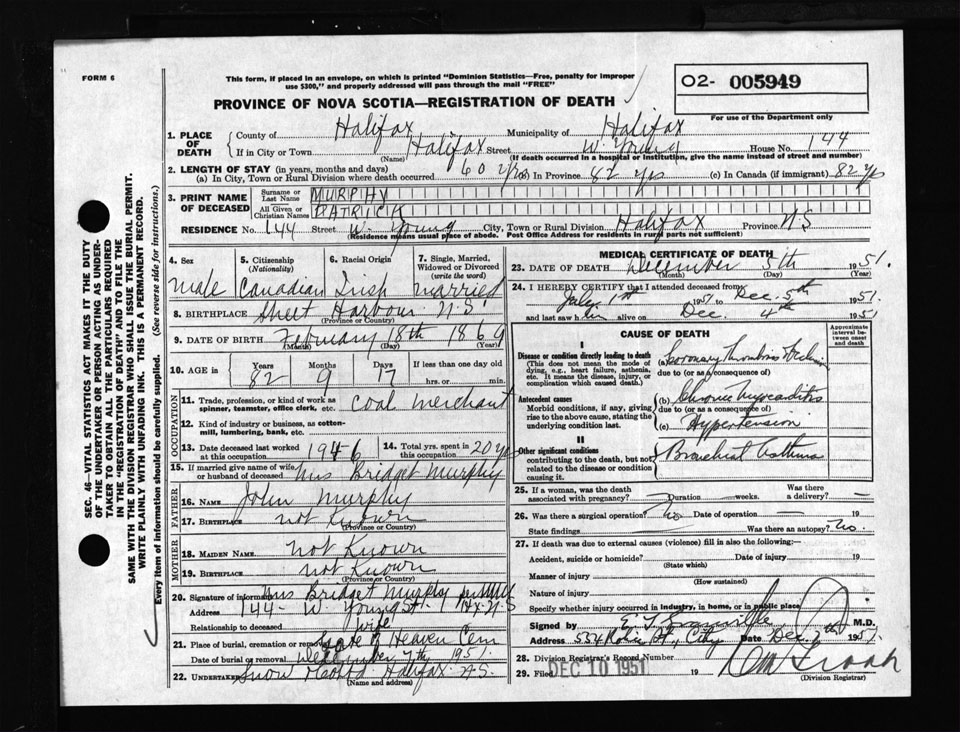 FORM 6
This form, if placed in an envelope, on which is printed "Dominion Statistics—Free, penalty for improper
use $300," and properly addressed will pass through the mail "FREE"
O2- 005949
For use of the Department only
PROVINCE OF NOVA SCOTIA—REGISTRATION OF DEATH
1. PLACE OF DEATH
County of Halifax Municipality of Halifax
If in City or Town Halifax Street W. Young House No. 144
(Name) (If death occurred in a hospital or institution, give the name instead of street and number)
2. LENGTH OF STAY (in years, months and days)
(a) In City, Town or Rural Division where death occurred 60 yrs (b) In Province 82 yrs (c) In Canada (if immigrant) 82 yrs
3. PRINT NAME OF DECEASED
Surname or Last Name MURPHY
All Given or Christian Names PATRICK
RESIDENCE No. 144 Street W. Young City, Town or Rural Division Halifax Province N.S
(Residence means usual place of abode. Post Office Address for residents in rural parts not sufficient)
4. Sex
male
5. Citizenship (Nationality)
Canadian
6. Racial Origin
Irish
7. Single, Married, Widowed or Divorced (write the word)
married
8. BIRTHPLACE Sheet Harbour N.S.
(Province or Country)
9. DATE OF BIRTH February 18th 1869
(Month) (Day) (Year)
10. AGE in Years Months Days If less than one day old
82 9 17 hrs. or min.
OCCUPATION
11. Trade, profession, or kind of work as spinner, teamster, office clerk, etc. Coal merchant
12. Kind of industry or business, as cotton-mill, lumbering, bank, etc.
13. Date deceased last worked at this occupation 1946
14. Total yrs. spent in this occupation 20 yrs
15. If married give name of wife or husband of deceased Mrs Bridget Murphy
FATHER
16. NAME John Murphy
17. BIRTHPLACE not Known
(Province or Country)
MOTHER
18. MAIDEN NAME not Known
19. BIRTHPLACE not Known
(Province or Country)
20. Signature of informant Mrs Bridget Murphy
Address 144- W. Young St. Hx. N.S
Relationship to deceased wife
21. Place of burial, cremation or removal Gate of Heaven Cem
Date of burial or removal December 7th 1951.
22. UNDERTAKER Snow & Co Ltd Halifax N.S.
(Name and address)
MEDICAL CERTIFICATE OF DEATH
23. DATE OF DEATH December 5th 1951.
(Month) (Day) (Year)
24. I HEREBY CERTIFY that I attended deceased from
July 1st 1951 to Dec. 5th 1951.
and last saw him alive on Dec. 4th 1951
CAUSE OF DEATH
Approximate interval between onset and death
I
Disease or condition directly leading to death
(This does not mean the mode of dying, e.g., heart failure, asthenia, etc. It means the disease, injury, or complication which caused death.)
(a) Coronary Thrombosis
due to (or as a consequence of)
Antecedent causes
Morbid conditions, if any, giving rise to the above cause, stating the underlying condition last.
(b) Chronic Myocarditis
due to (or as a consequence of)
(c) Hypertension
II
Other significant conditions
contributing to the death, but not related to the disease or condition causing it.
Bronchial Asthma
25. If a woman, was the death associated with pregnancy? — Duration — weeks. Was there a delivery? —
26. Was there a surgical operation? No Date of operation — 19
State findings Was there an autopsy? No.
27. If death was due to external causes (violence) fill in also the following:—
Accident, suicide or homicide? Date of injury 19
(State which)
Manner of injury
(How sustained)
Nature of injury
Specify whether injury occurred in industry, in home, or in public place
Signed by M.D.
Address 554 Robie St., City Date Dec. 7th 1951.
28. Division Registrar's Record Number
29. Filed DEC 10 1951 19
(Division Registrar)
SEC. 46—VITAL STATISTICS ACT MAKES IT THE DUTY
OF THE UNDERTAKER OR PERSON ACTING AS UNDERTAKER TO OBTAIN ALL THE PARTICULARS REQUIRED
IN THE "REGISTRATION OF DEATH" AND TO FILE THE
SAME WITH THE DIVISION REGISTRAR WHO SHALL ISSUE THE BURIAL PERMIT.
WRITE PLAINLY WITH UNFADING INK. THIS IS A PERMANENT RECORD.
Every item of information should be carefully supplied. (See reverse side for instructions.)